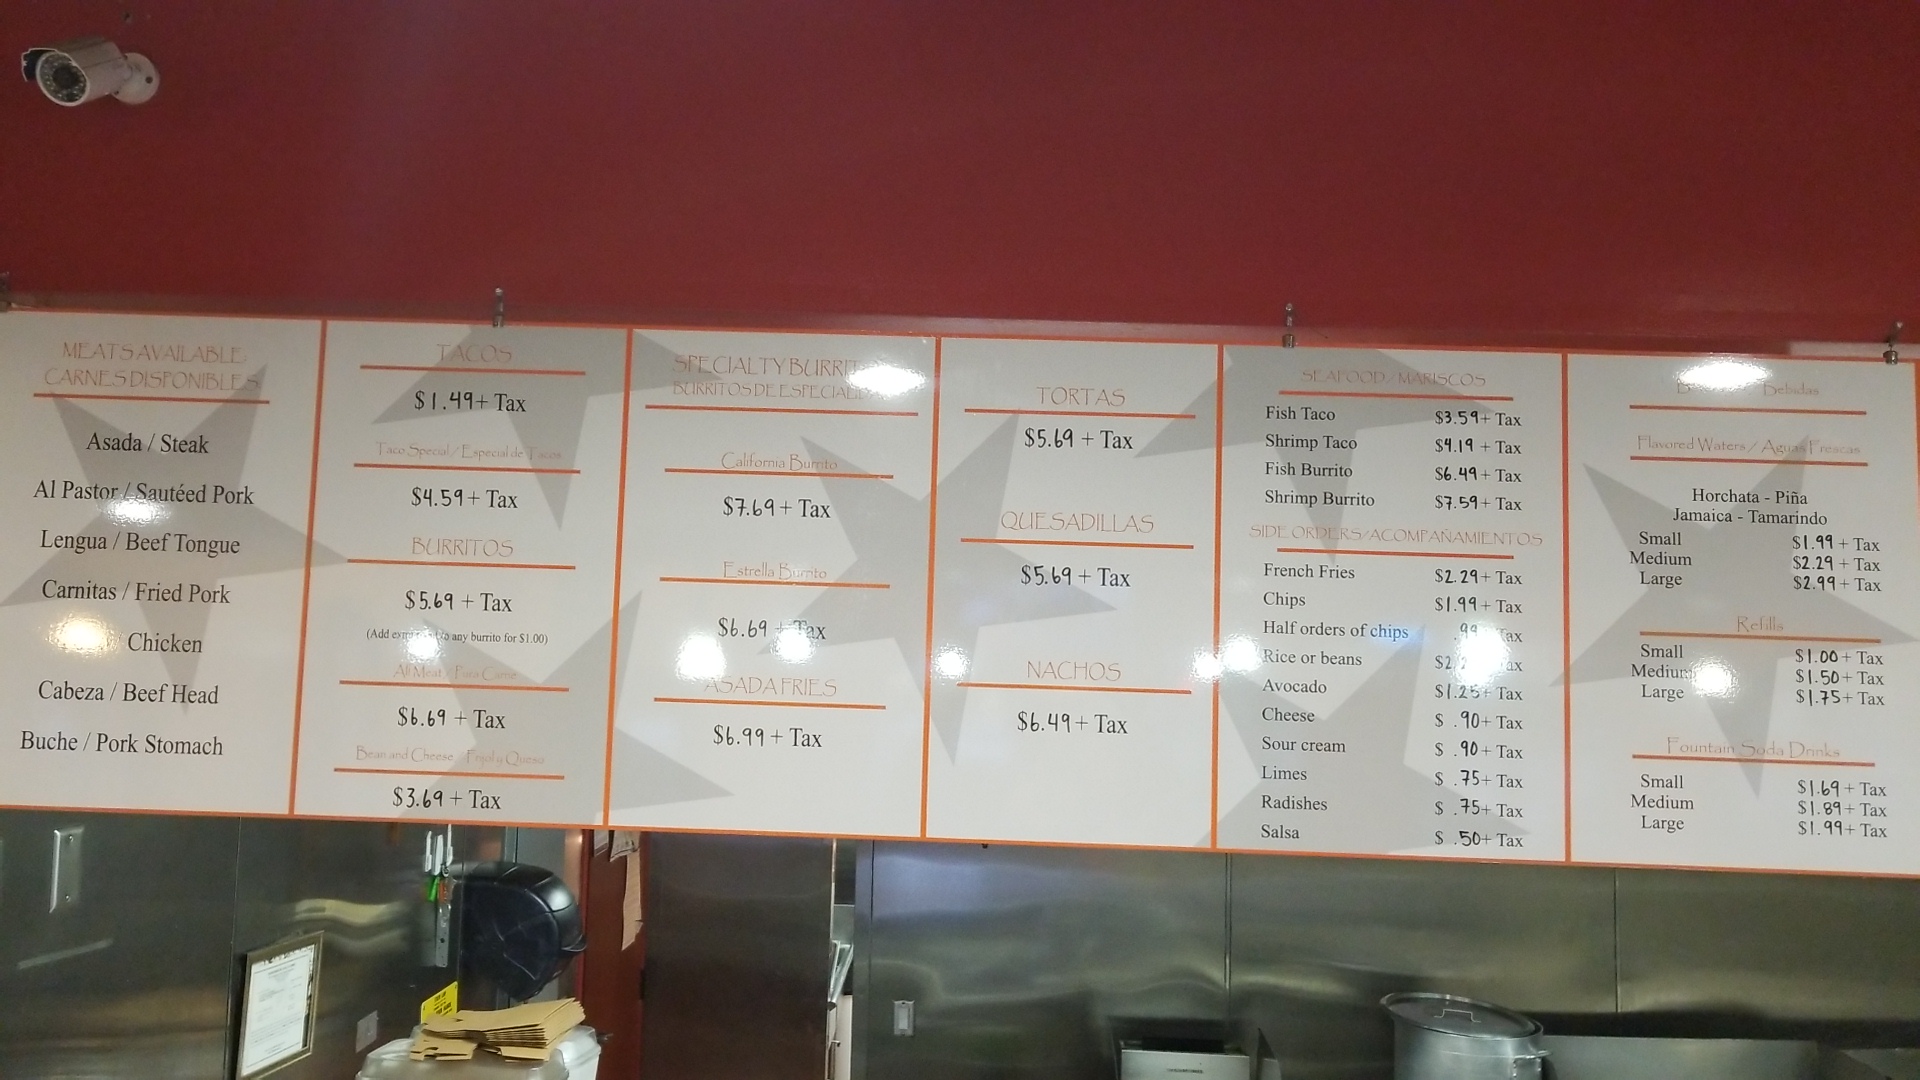 MEATS AVAILABLE
CARNES DISPONIBLES
Asada / Steak
Al Pastor / Sautéed Pork
Lengua / Beef Tongue
Carnitas / Fried Pork
/ Chicken
Cabeza / Beef Head
Buche / Pork Stomach
TACOS
$1.49+ Tax
Taco Special / Especial de Tacos
$4.59+ Tax
BURRITOS
$5.69+ Tax
(Add to any burrito for $1.00)
All Meat / Pura Carne
$6.69 + Tax
Bean and Cheese / Frijol y Queso
$3.69 + Tax
SPECIALTY
BURRITOS DE
California Burrito
$7.69+ Tax
Estrella Burrito
$6.69 + Tax
ASADA FRIES
$6.99 + Tax
TORTAS
$5.69 + Tax
QUESADILLAS
$5.69+ Tax
NACHOS
$6.49+ Tax
SEAFOOD / MARISCOS
Fish Taco $3.59+ Tax
Shrimp Taco $4.19 + Tax
Fish Burrito $6.49+ Tax
Shrimp Burrito $7.59+ Tax
SIDE ORDERS/ACOMPAÑAMIENTOS
French Fries $2.29+ Tax
Chips $1.99+ Tax
Half orders of chips .99 Tax
Rice or beans
Avocado $1.25+ Tax
Cheese $ .90+ Tax
Sour cream $ .90+ Tax
Limes $ .75+ Tax
Radishes $ .75+ Tax
Salsa $ .50+ Tax
Bebidas
Flavored Waters / Aguas Frescas
Horchata - Piña
Jamaica - Tamarindo
Small $1.99 + Tax
Medium $2.29 + Tax
Large $2.99+ Tax
Refills
Small $1.00+ Tax
Medium $1.50+ Tax
Large $1.75+ Tax
Fountain Soda Drinks
Small $1.69+ Tax
Medium $1.89+ Tax
Large $1.99+ Tax